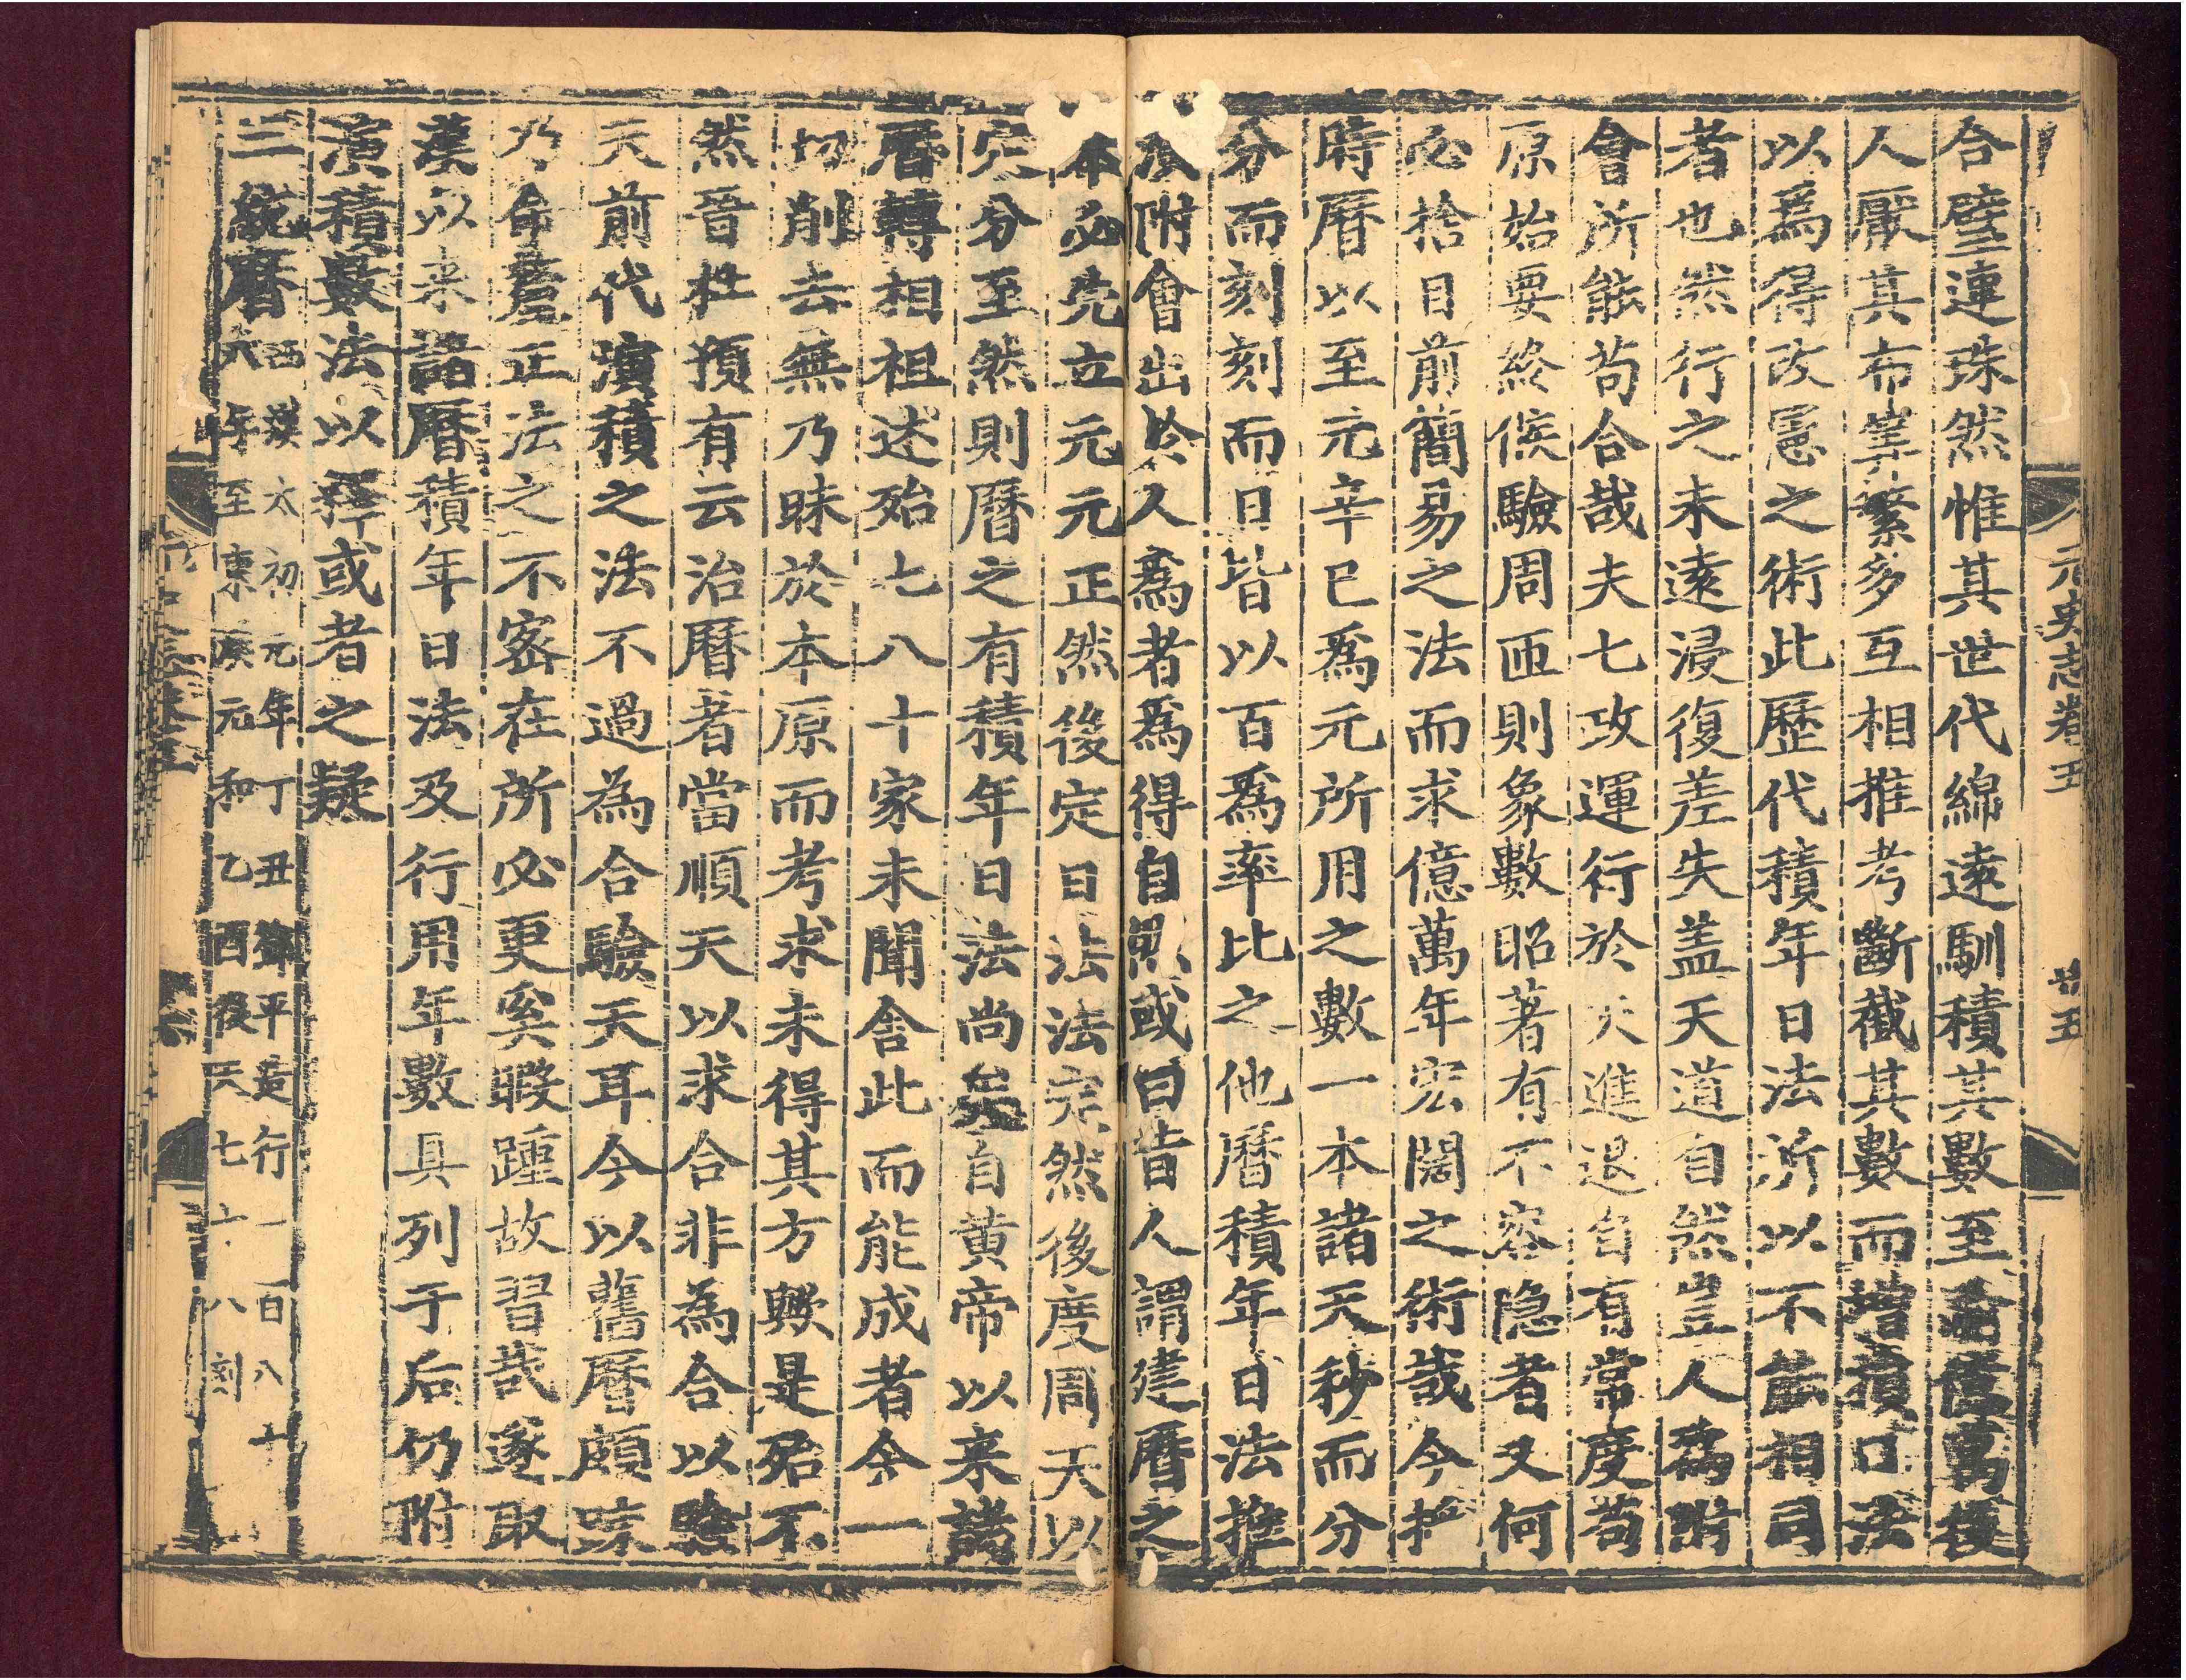 元史志卷五　廿五
合璧連珠然惟其世代綿遠馴積其數至踰億萬後
人厭其布筭繁多互相推考斷截其數而增損日法
以爲得改憲之術此歷代積年日法所以不能相同
者也然行之未遠浸復差失盖天道自然豈人爲附
會所能苟合哉夫七政運行於天進退自有常度苟
原始要終候驗周匝則象數昭著有不容隱者又何
必捨目前簡易之法而求億萬年宏闊之術哉今授
時曆以至元辛巳爲元所用之數一本諸天秒而分
分而刻刻而日皆以百爲率比之他曆積年日法推
演附會出於人爲者爲得自然或曰昔人謂建曆之
本必先立元元正然後定日法法定然後度周天以
定分至然則曆之有積年日法尚矣自黄帝以来諸
曆轉相祖述殆七八十家未聞舍此而能成者今一
切削去無乃昧於本原而考求未得其方歟是殆不
然晉杜預有云治曆者當順天以求合非為合以驗
天前代演積之法不過為合驗天耳今以舊曆頗踈
乃命釐正法之不密在所必更奚暇踵故習哉遂取
漢以来諸曆積年日法及行用年數具列于后仍附
演積數法以釋或者之疑
三統曆
西漢太初元年丁丑鄧平造行一百八十
八年至東漢元和乙酉後天七十八刻